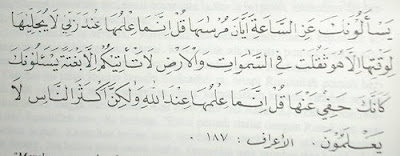 يَسْأَلُونَكَ عَنِ السَّاعَةِ أَيَّانَ مُرْسَاهَا قُلْ إِنَّمَا عِلْمُهَا عِنْدَ رَبِّي لَا يُجَلِّيهَا
لِوَقْتِهَا إِلَّا هُوَ ثَقُلَتْ فِي السَّمٰوَاتِ وَالْأَرْضِ لَا تَأْتِيكُمْ إِلَّا بَغْتَةً يَسْئَلُونَكَ
كَأَنَّكَ حَفِيٌّ عَنْهَا قُلْ إِنَّمَا عِلْمُهَا عِنْدَ اللهِ وَلٰكِنَّ أَكْثَرَ النَّاسِ لَا
يَعْلَمُونَ . الأعراف : ١٨٧ .